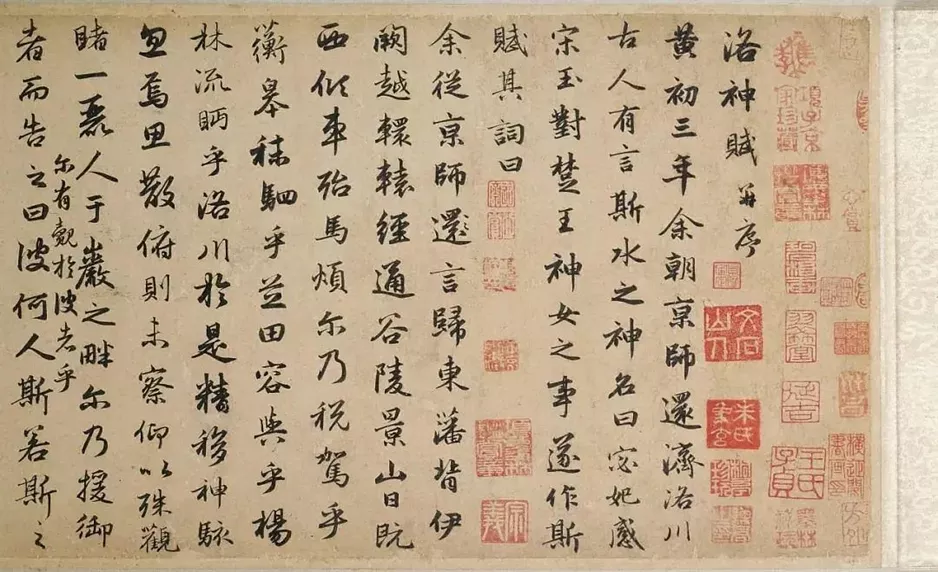 項子京家珍藏
洛神賦 并序
黄初三年余朝京師還濟洛川
古人有言斯水之神名曰宓妃感
宋玉對楚王神女之事遂作斯
賦其詞曰
余從京師還言歸東藩背伊
闕越轘轅經通谷陵景山日既
西傾車殆馬煩尔乃税駕乎
蘅皋秣駟乎芝田容與乎楊
林流眄乎洛川於是精移神駭
忽焉思散俯則未察仰以殊觀
睹一麗人于巖之畔尔乃援御
尔有覿於彼者乎
者而告之曰彼何人斯若斯之